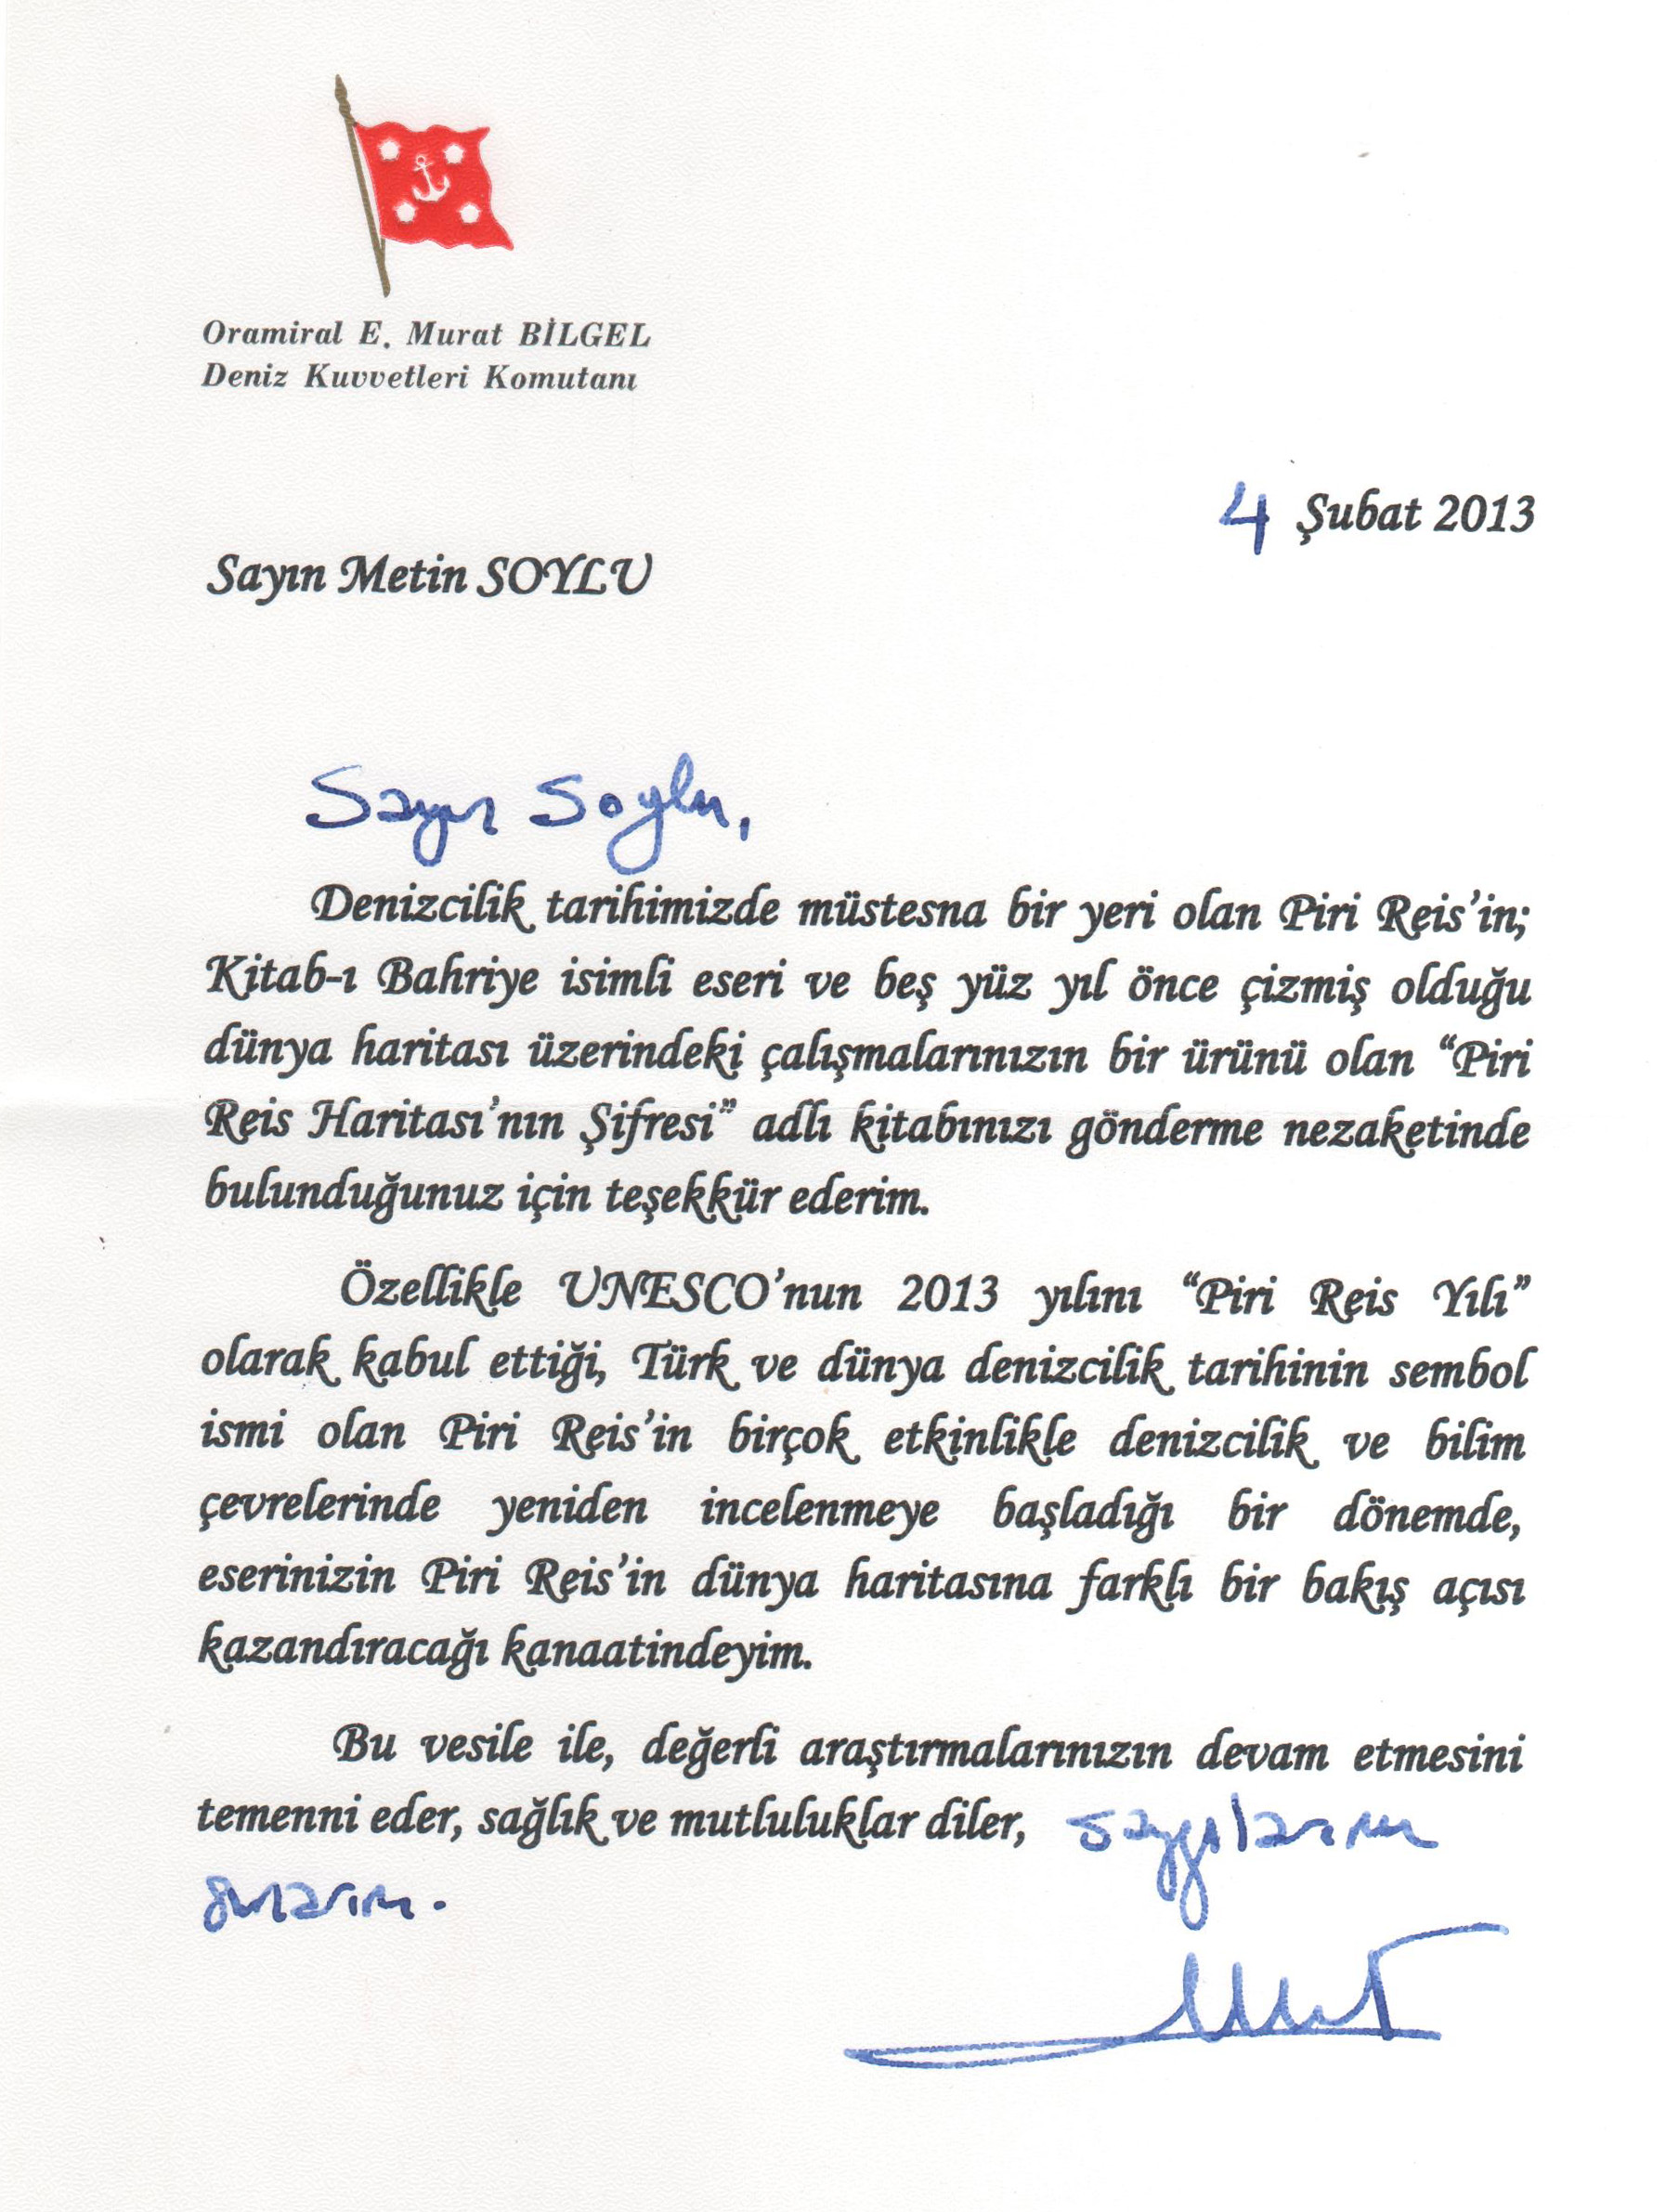 Oramiral E. Murat BİLGEL
Deniz Kuvvetleri Komutanı
4 Şubat 2013
Sayın Metin SOYLU
Sayın Soylu,
Denizcilik tarihimizde müstesna bir yeri olan Piri Reis’in;
Kitab-ı Bahriye isimli eseri ve beş yüz yıl önce çizmiş olduğu
dünya haritası üzerindeki çalışmalarınızın bir ürünü olan “Piri
Reis Haritası’nın Şifresi” adlı kitabınızı gönderme nezaketinde
bulunduğunuz için teşekkür ederim.
Özellikle UNESCO’nun 2013 yılını “Piri Reis Yılı”
olarak kabul ettiği, Türk ve dünya denizcilik tarihinin sembol
ismi olan Piri Reis’in birçok etkinlikle denizcilik ve bilim
çevrelerinde yeniden incelenmeye başladığı bir dönemde,
eserinizin Piri Reis’in dünya haritasına farklı bir bakış açısı
kazandıracağı kanaatindeyim.
Bu vesile ile, değerli araştırmalarınızın devam etmesini
temenni eder, sağlık ve mutluluklar diler, saygılarımı
sunarım.